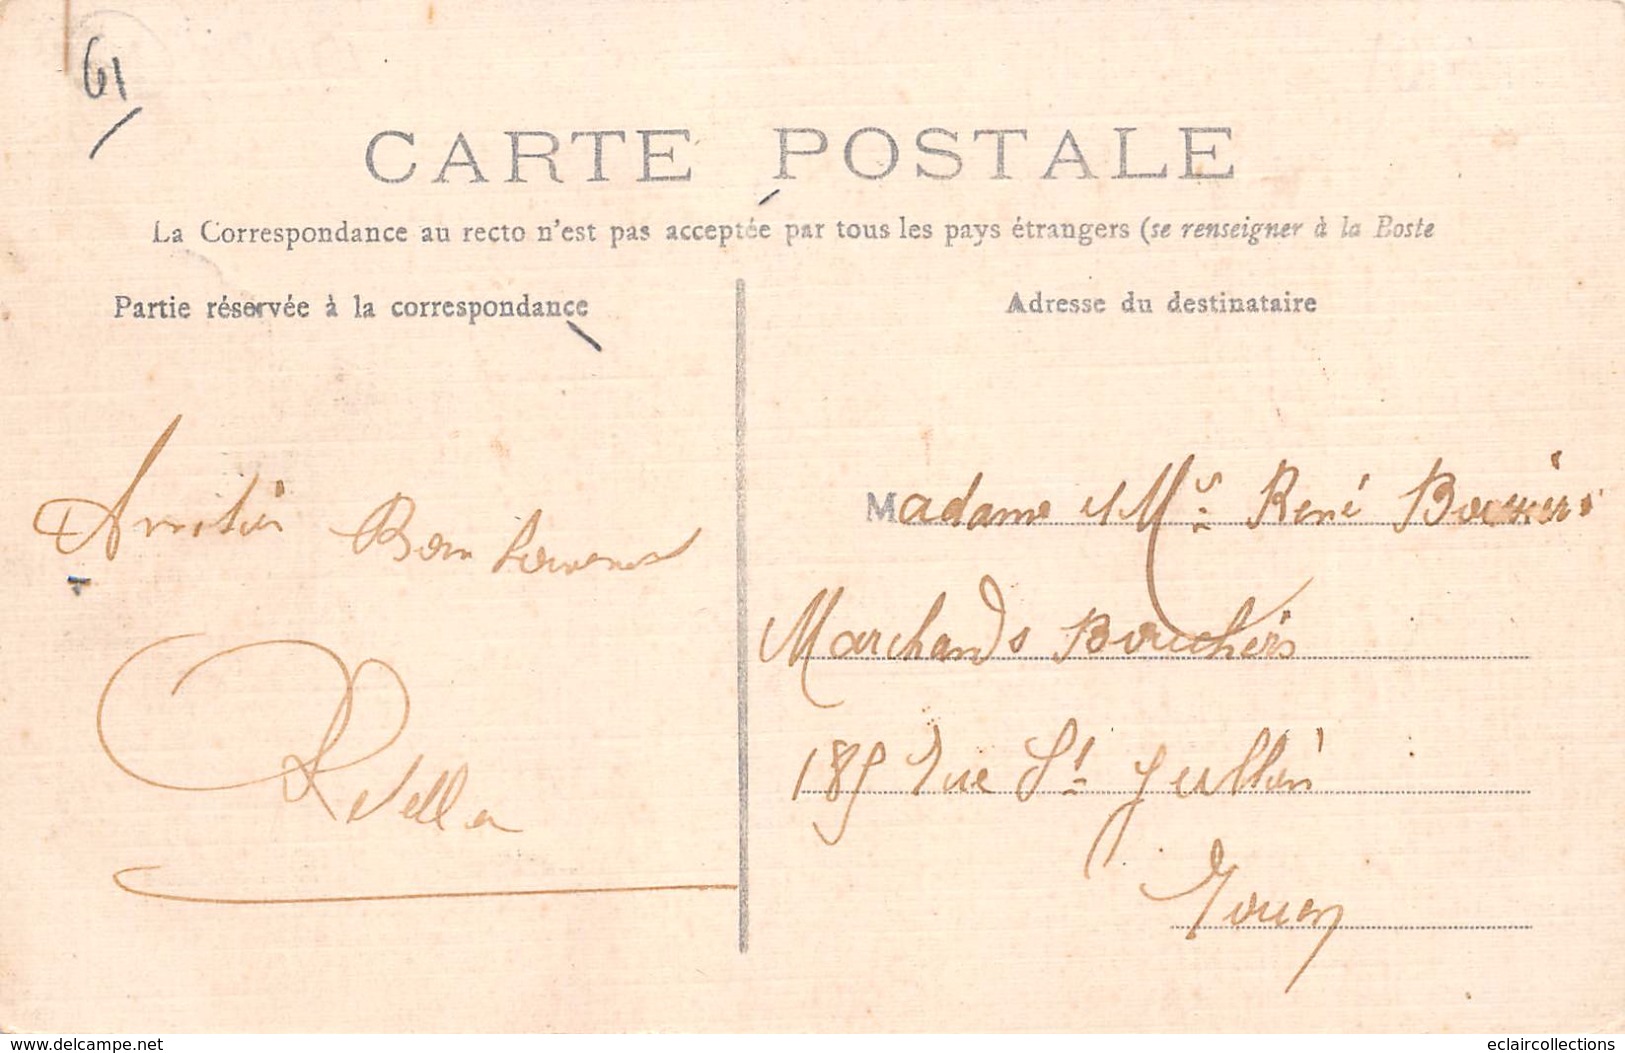 61
CARTE POSTALE
La Correspondance au recto n'est pas acceptée par tous les pays étrangers (se renseigner à la Poste
Partie réservée à la correspondance
Adresse du destinataire
Bon
Madame et Mr René
Marchands Bouchers
185 rue St Jullien
Rouen
www.delcampe.net
eclaircollections